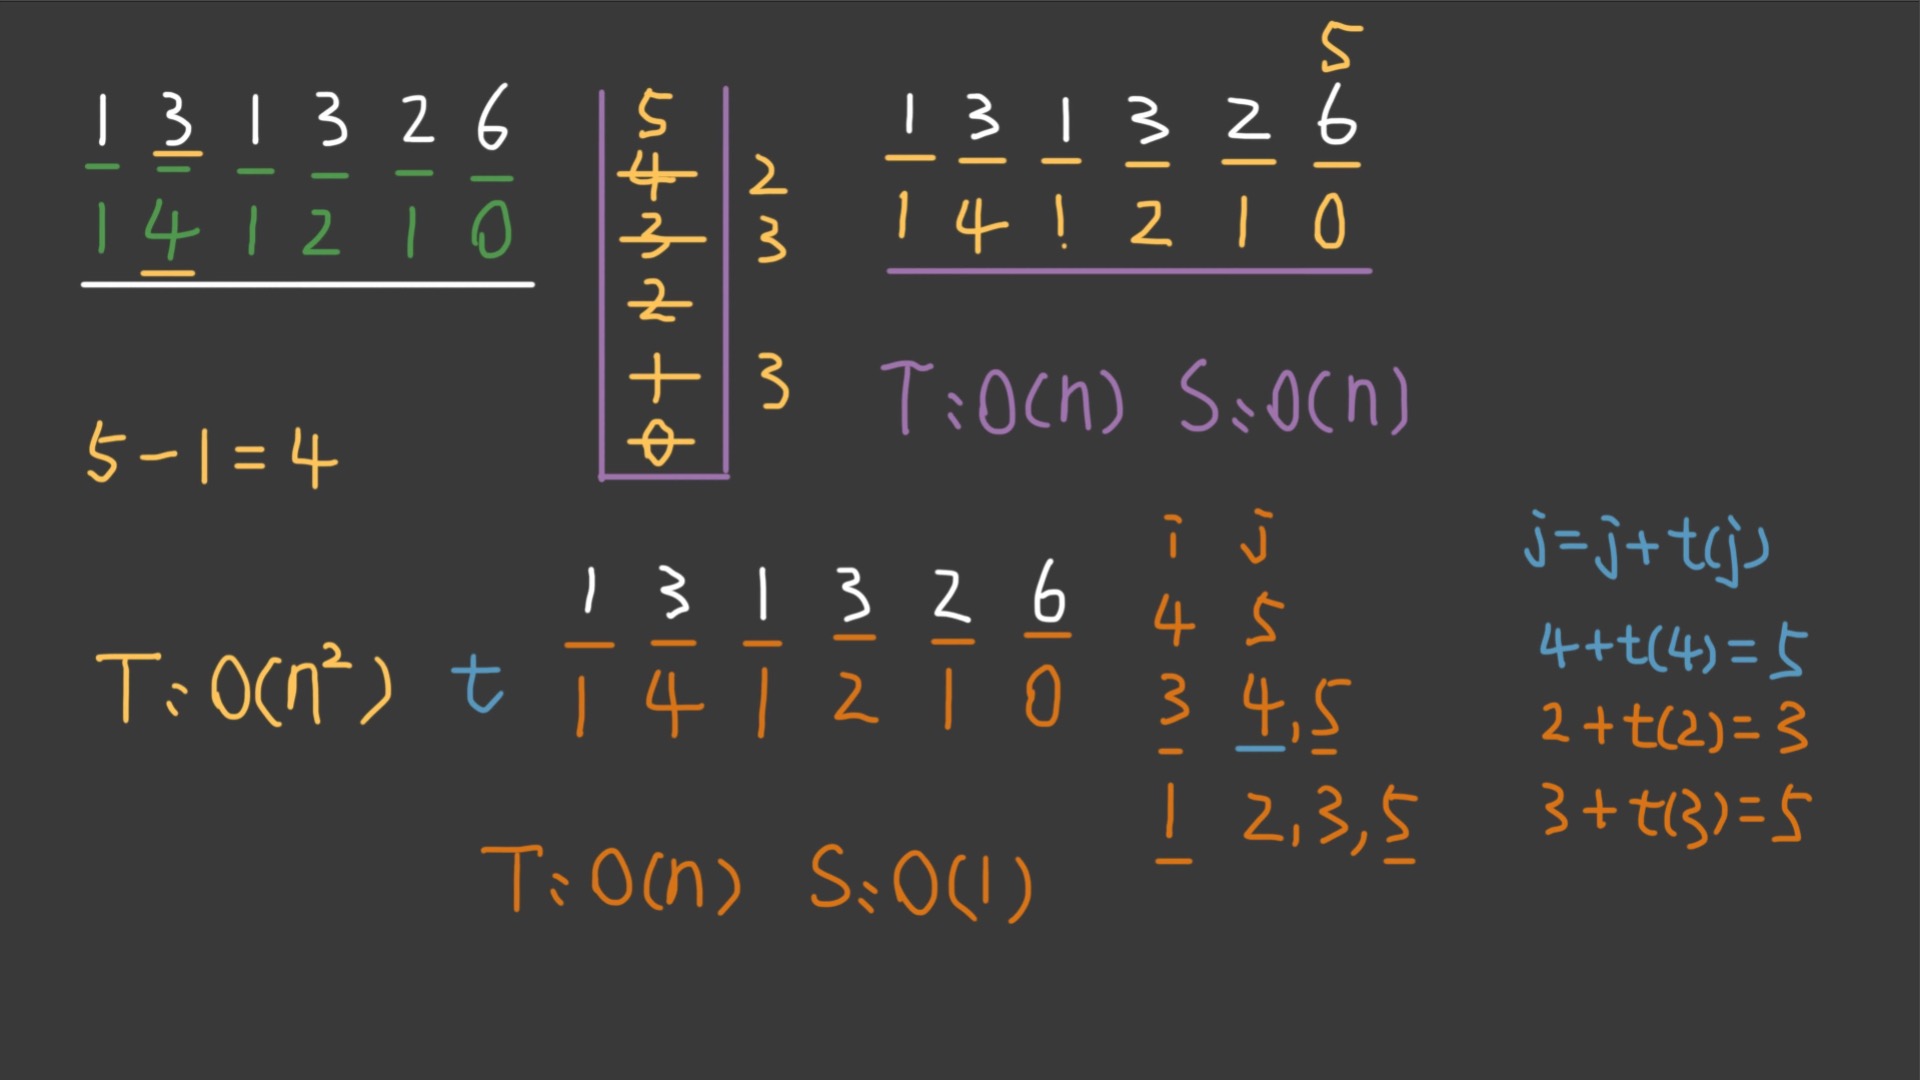 1 3 1 3 2 6
1 4 1 2 1 0
5-1=4
T:O(n²)
5
4 2
3 3
2
1 3
0
5
1 3 1 3 2 6
1 4 1 2 1 0
T:O(n) S:O(n)
1 3 1 3 2 6
t 1 4 1 2 1 0
T:O(n) S:O(1)
i j
4 5
3 4,5
1 2,3,5
j=j+t(j)
4+t(4)=5
2+t(2)=3
3+t(3)=5